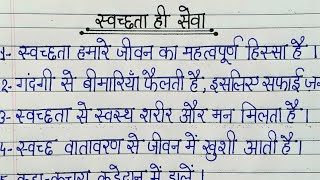 स्वच्छता ही सेवा
1- स्वच्छता हमारे जीवन का महत्वपूर्ण हिस्सा है ।
2- गंदगी से बीमारियाँ फैलती है, इसलिए सफाई
3- स्वच्छता से स्वस्थ शरीर और मन मिलता है ।
4- स्वच्छ वातावरण से जीवन में खुशी आती है ।
कूड़ा-कचरा कूड़ेदान में डालें ।